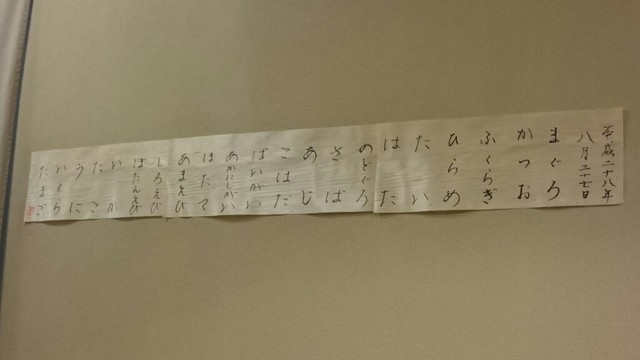 平成二十八年
八月二十七日
まぐろ
かつお
ふくらぎ
ひらめ
たい
はた
のどぐろ
さば
あじ
こはだ
ばいがい
あかにしがい
ほたて
あまえび
しろえび
ぼたんえび
いか
たこ
うに
いくら
たまご